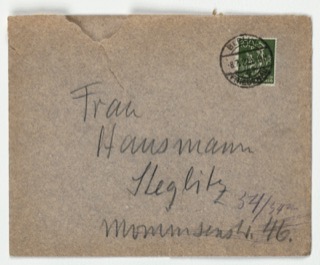 Frau
Hausmann
Steglitz
Mommsenstr. 46.